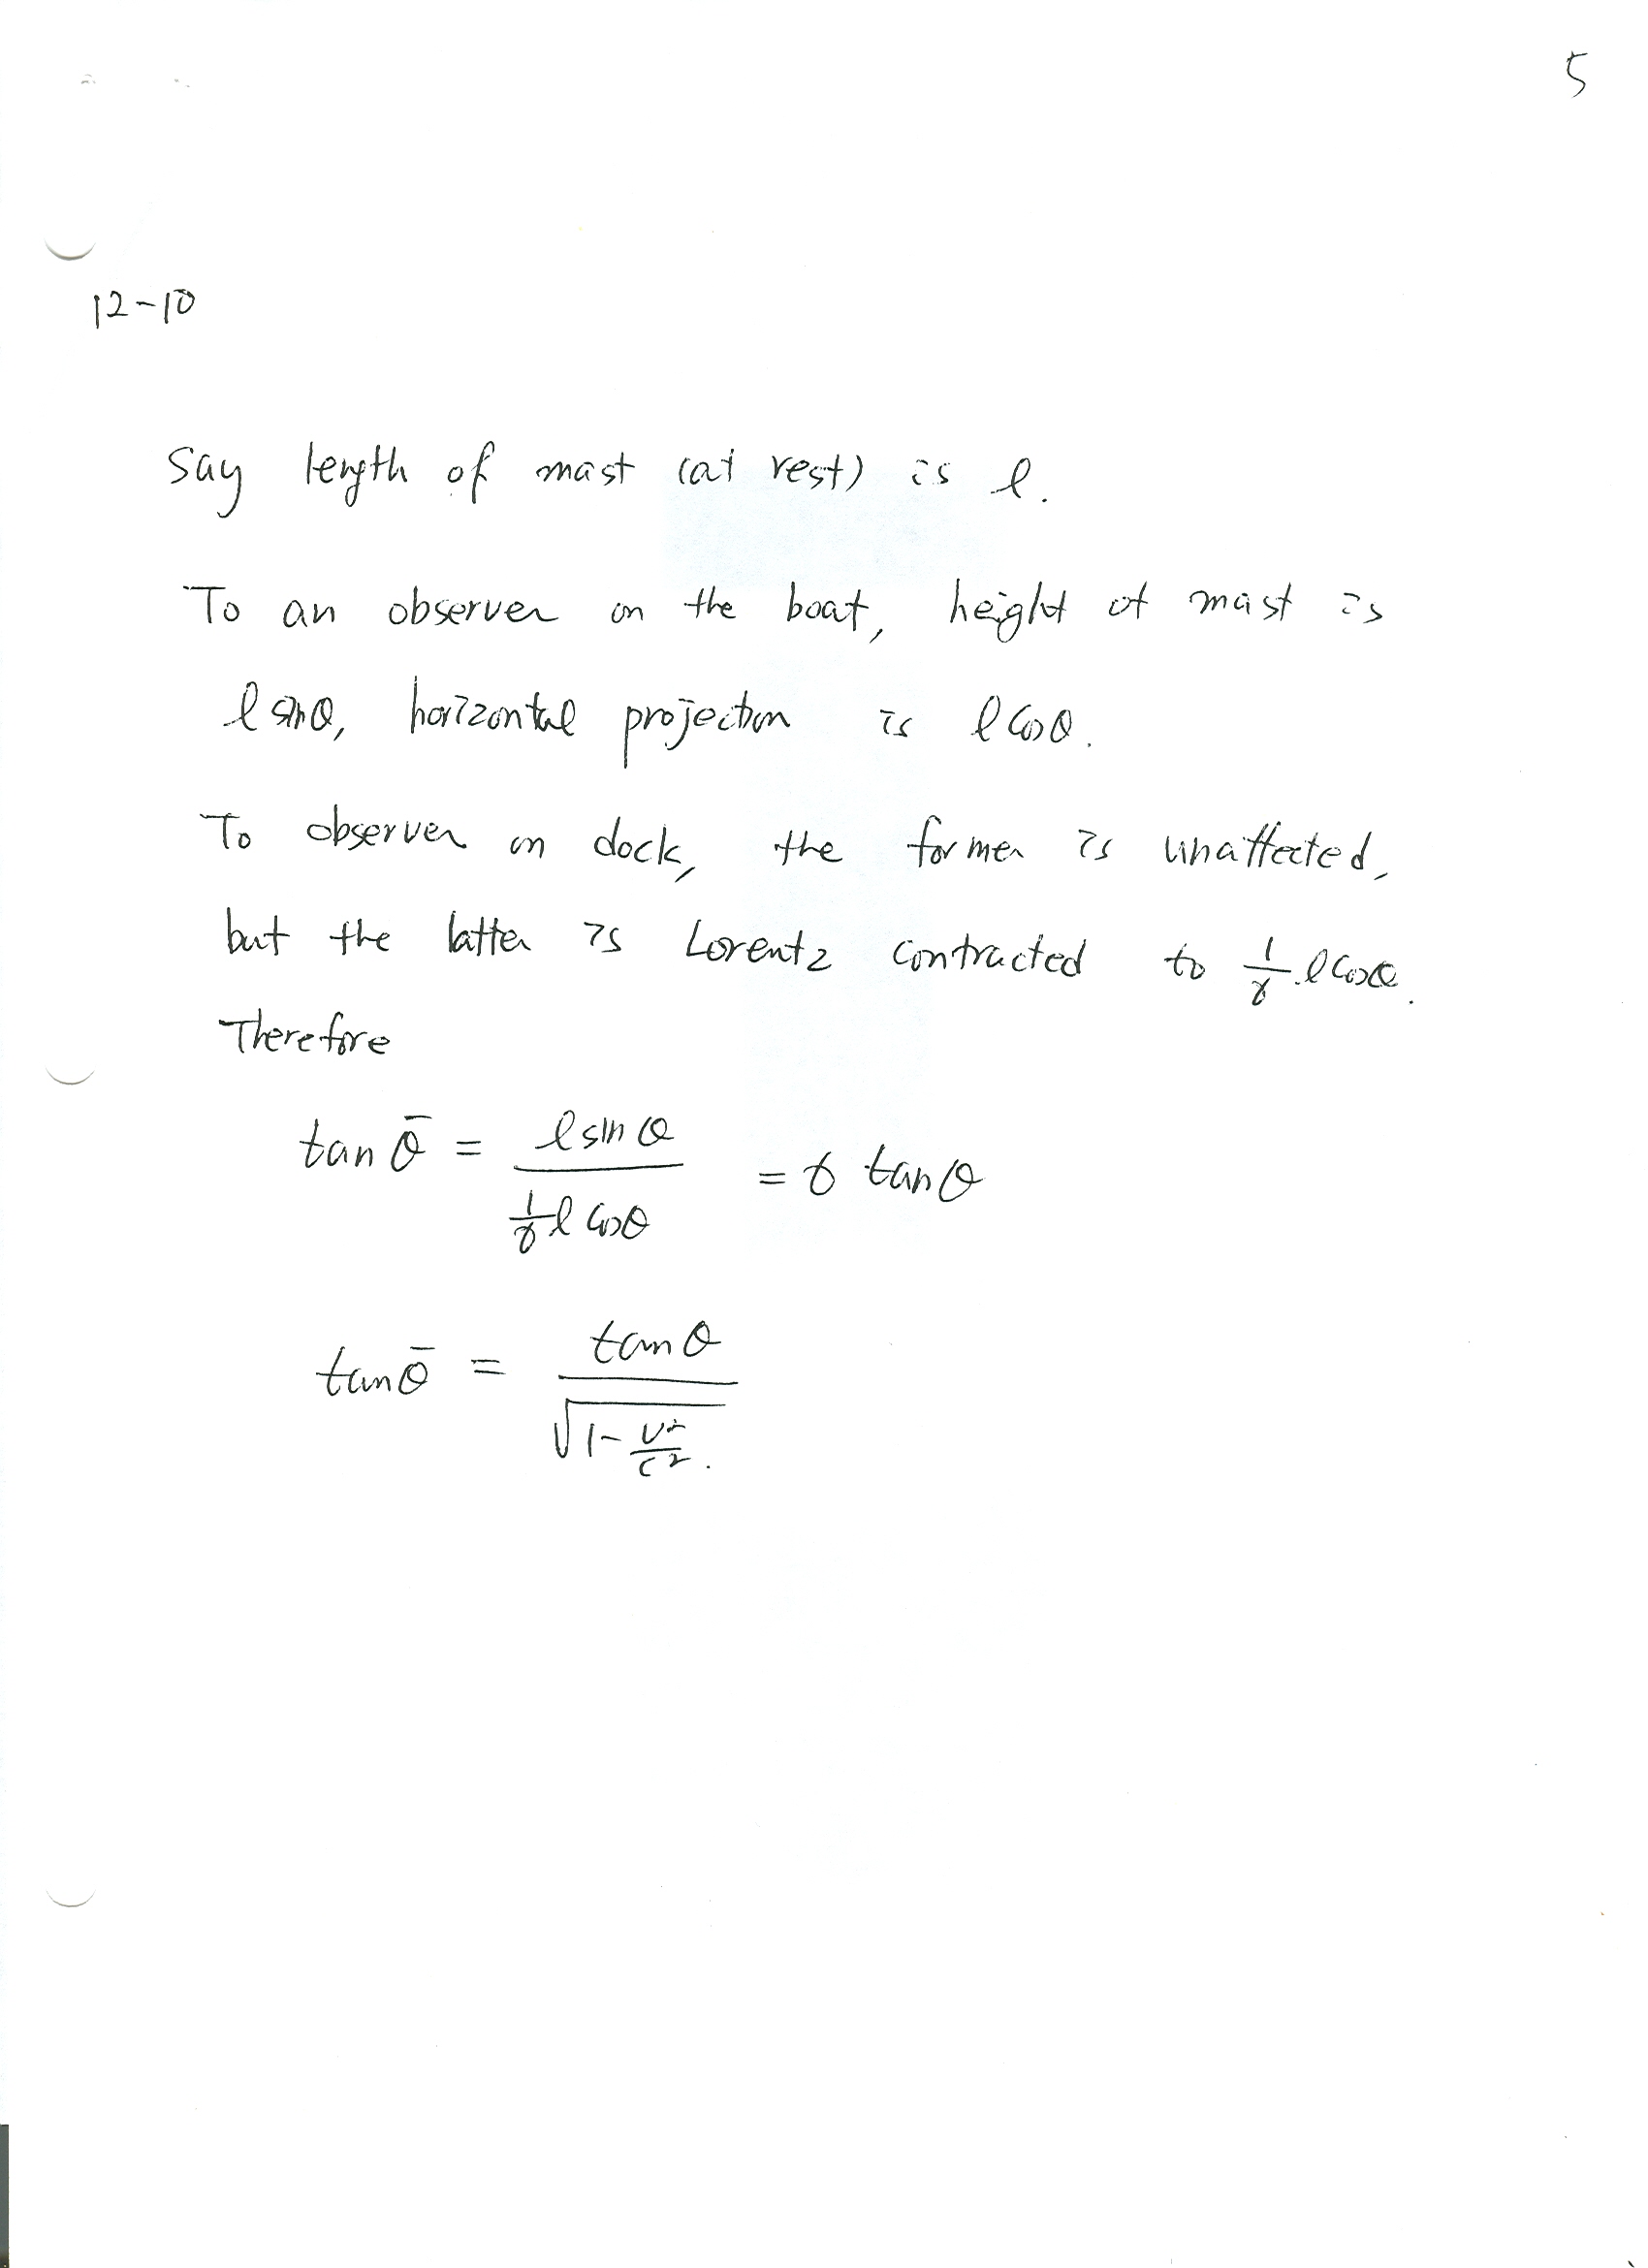 5
12-10
Say length of mast (at rest) is l.
To an observer on the boat, height of mast is
l sinθ, horizontal projection is l cosθ.
To observer on dock, the former is unaffected,
but the latter is Lorentz contracted to 1/γ l cosθ.
Therefore
tan θ̄ = l sin θ / (1/γ l cosθ) = γ tanθ
tan θ̄ = tan θ / √(1 - v²/c²).